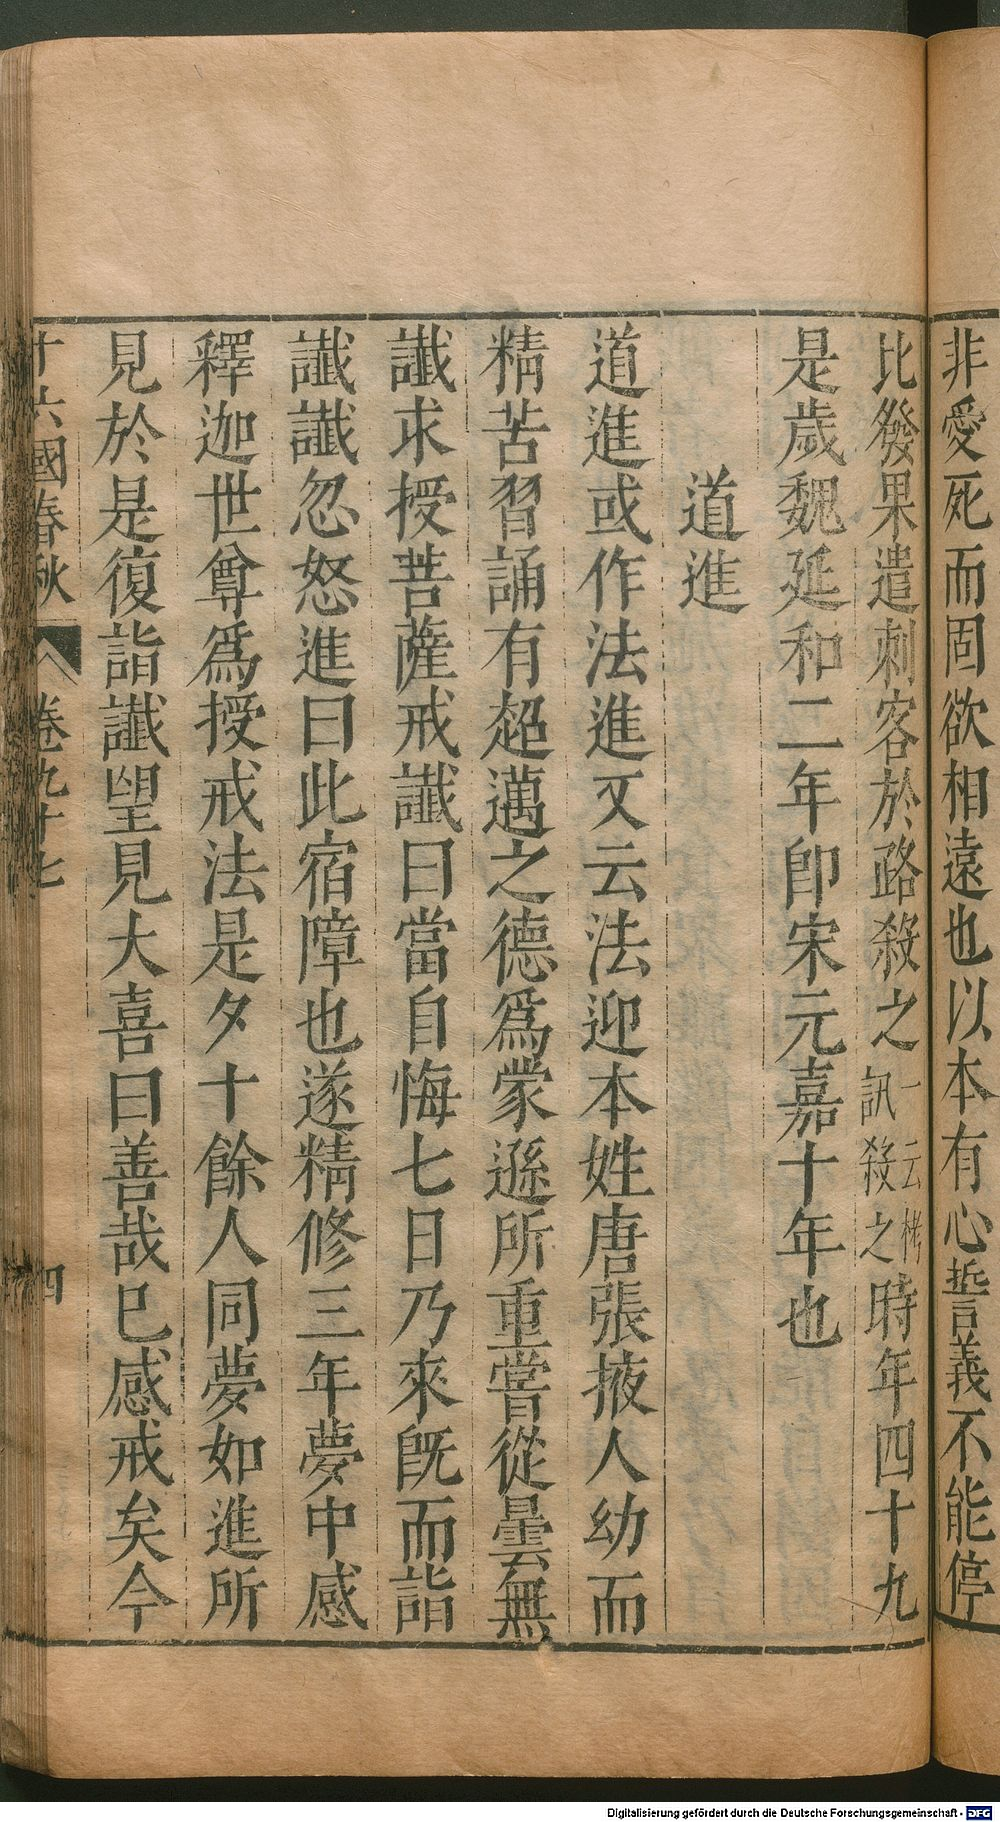 非愛死而固欲相遠也以本有心誓義不能停
比發果遣刺客於路殺之一云拷訊殺之時年四十九
是歲魏延和二年卽宋元嘉十年也
道進
道進或作法進又云法迎本姓唐張掖人幼而
精苦習誦有超邁之德爲蒙遜所重嘗從曇無
讖求授菩薩戒讖曰當自悔七日乃來旣而詣
讖讖忽怒進曰此宿障也遂精修三年夢中感
釋迦世尊爲授戒法是夕十餘人同夢如進所
見於是復詣讖望見大喜曰善哉已感戒矣今
十六國春秋 卷九十七 四
Digitalisierung gefördert durch die Deutsche Forschungsgemeinschaft - DFG